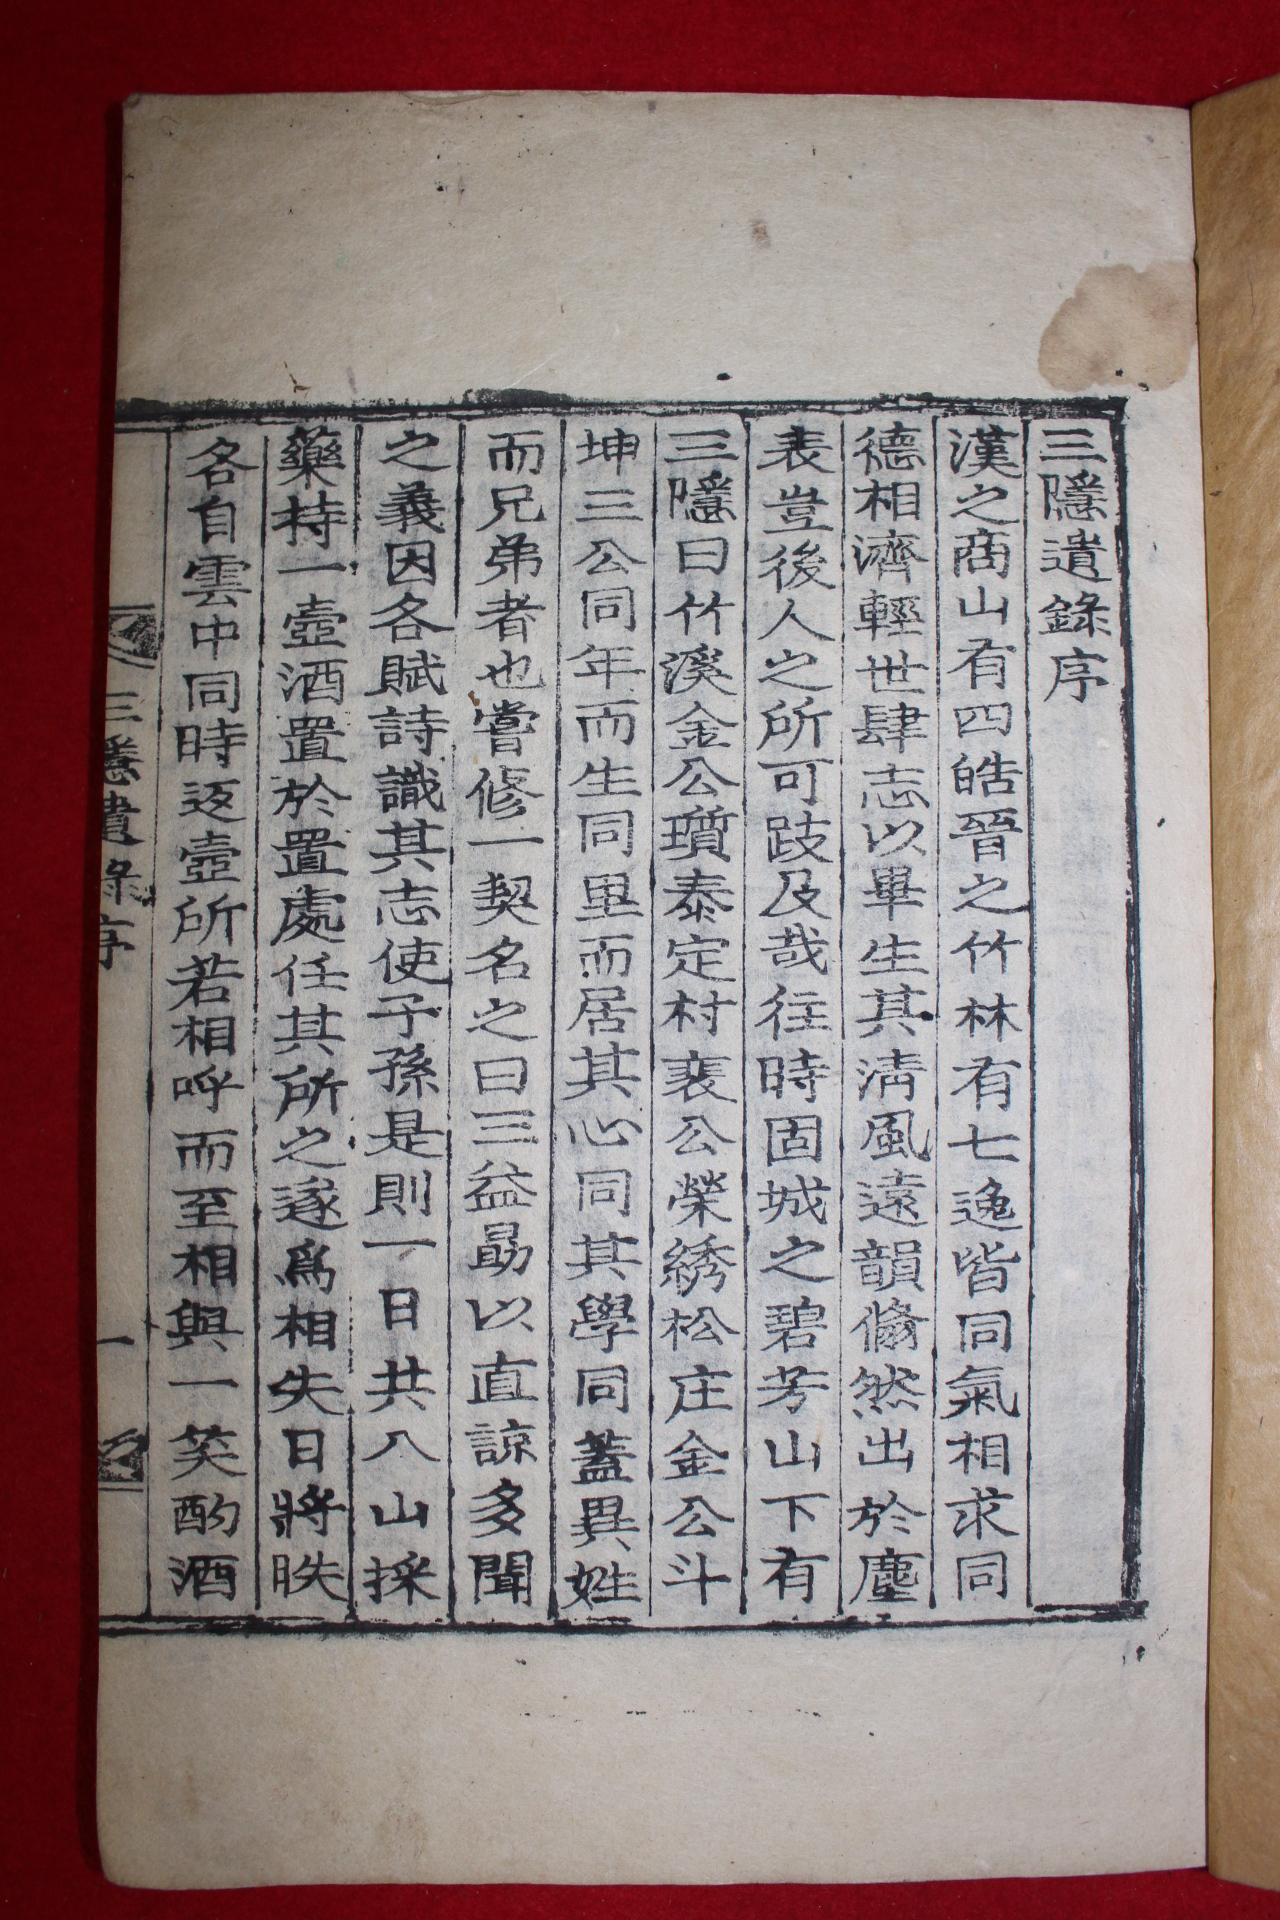 三隱遺錄序
漢之商山有四皓晉之竹林有七逸皆同氣相求同
德相濟輕世肆志以畢生其淸風遠韻翛然出於塵
表豈後人之所可跂及哉往時固城之碧芳山下有
三隱曰竹溪金公瓆泰定村裵公榮綉松庄金公斗
坤三公同年而生同里而居其心同其學同蓋異姓
而兄弟者也嘗修一契名之曰三益勗以直諒多聞
之義因各賦詩識其志使子孫是則一日共入山採
藥持一壺酒置於置處任其所之遂爲相失日將昳
各自雲中同時返壺所若相呼而至相與一笑酌酒
三隱遺錄序
一